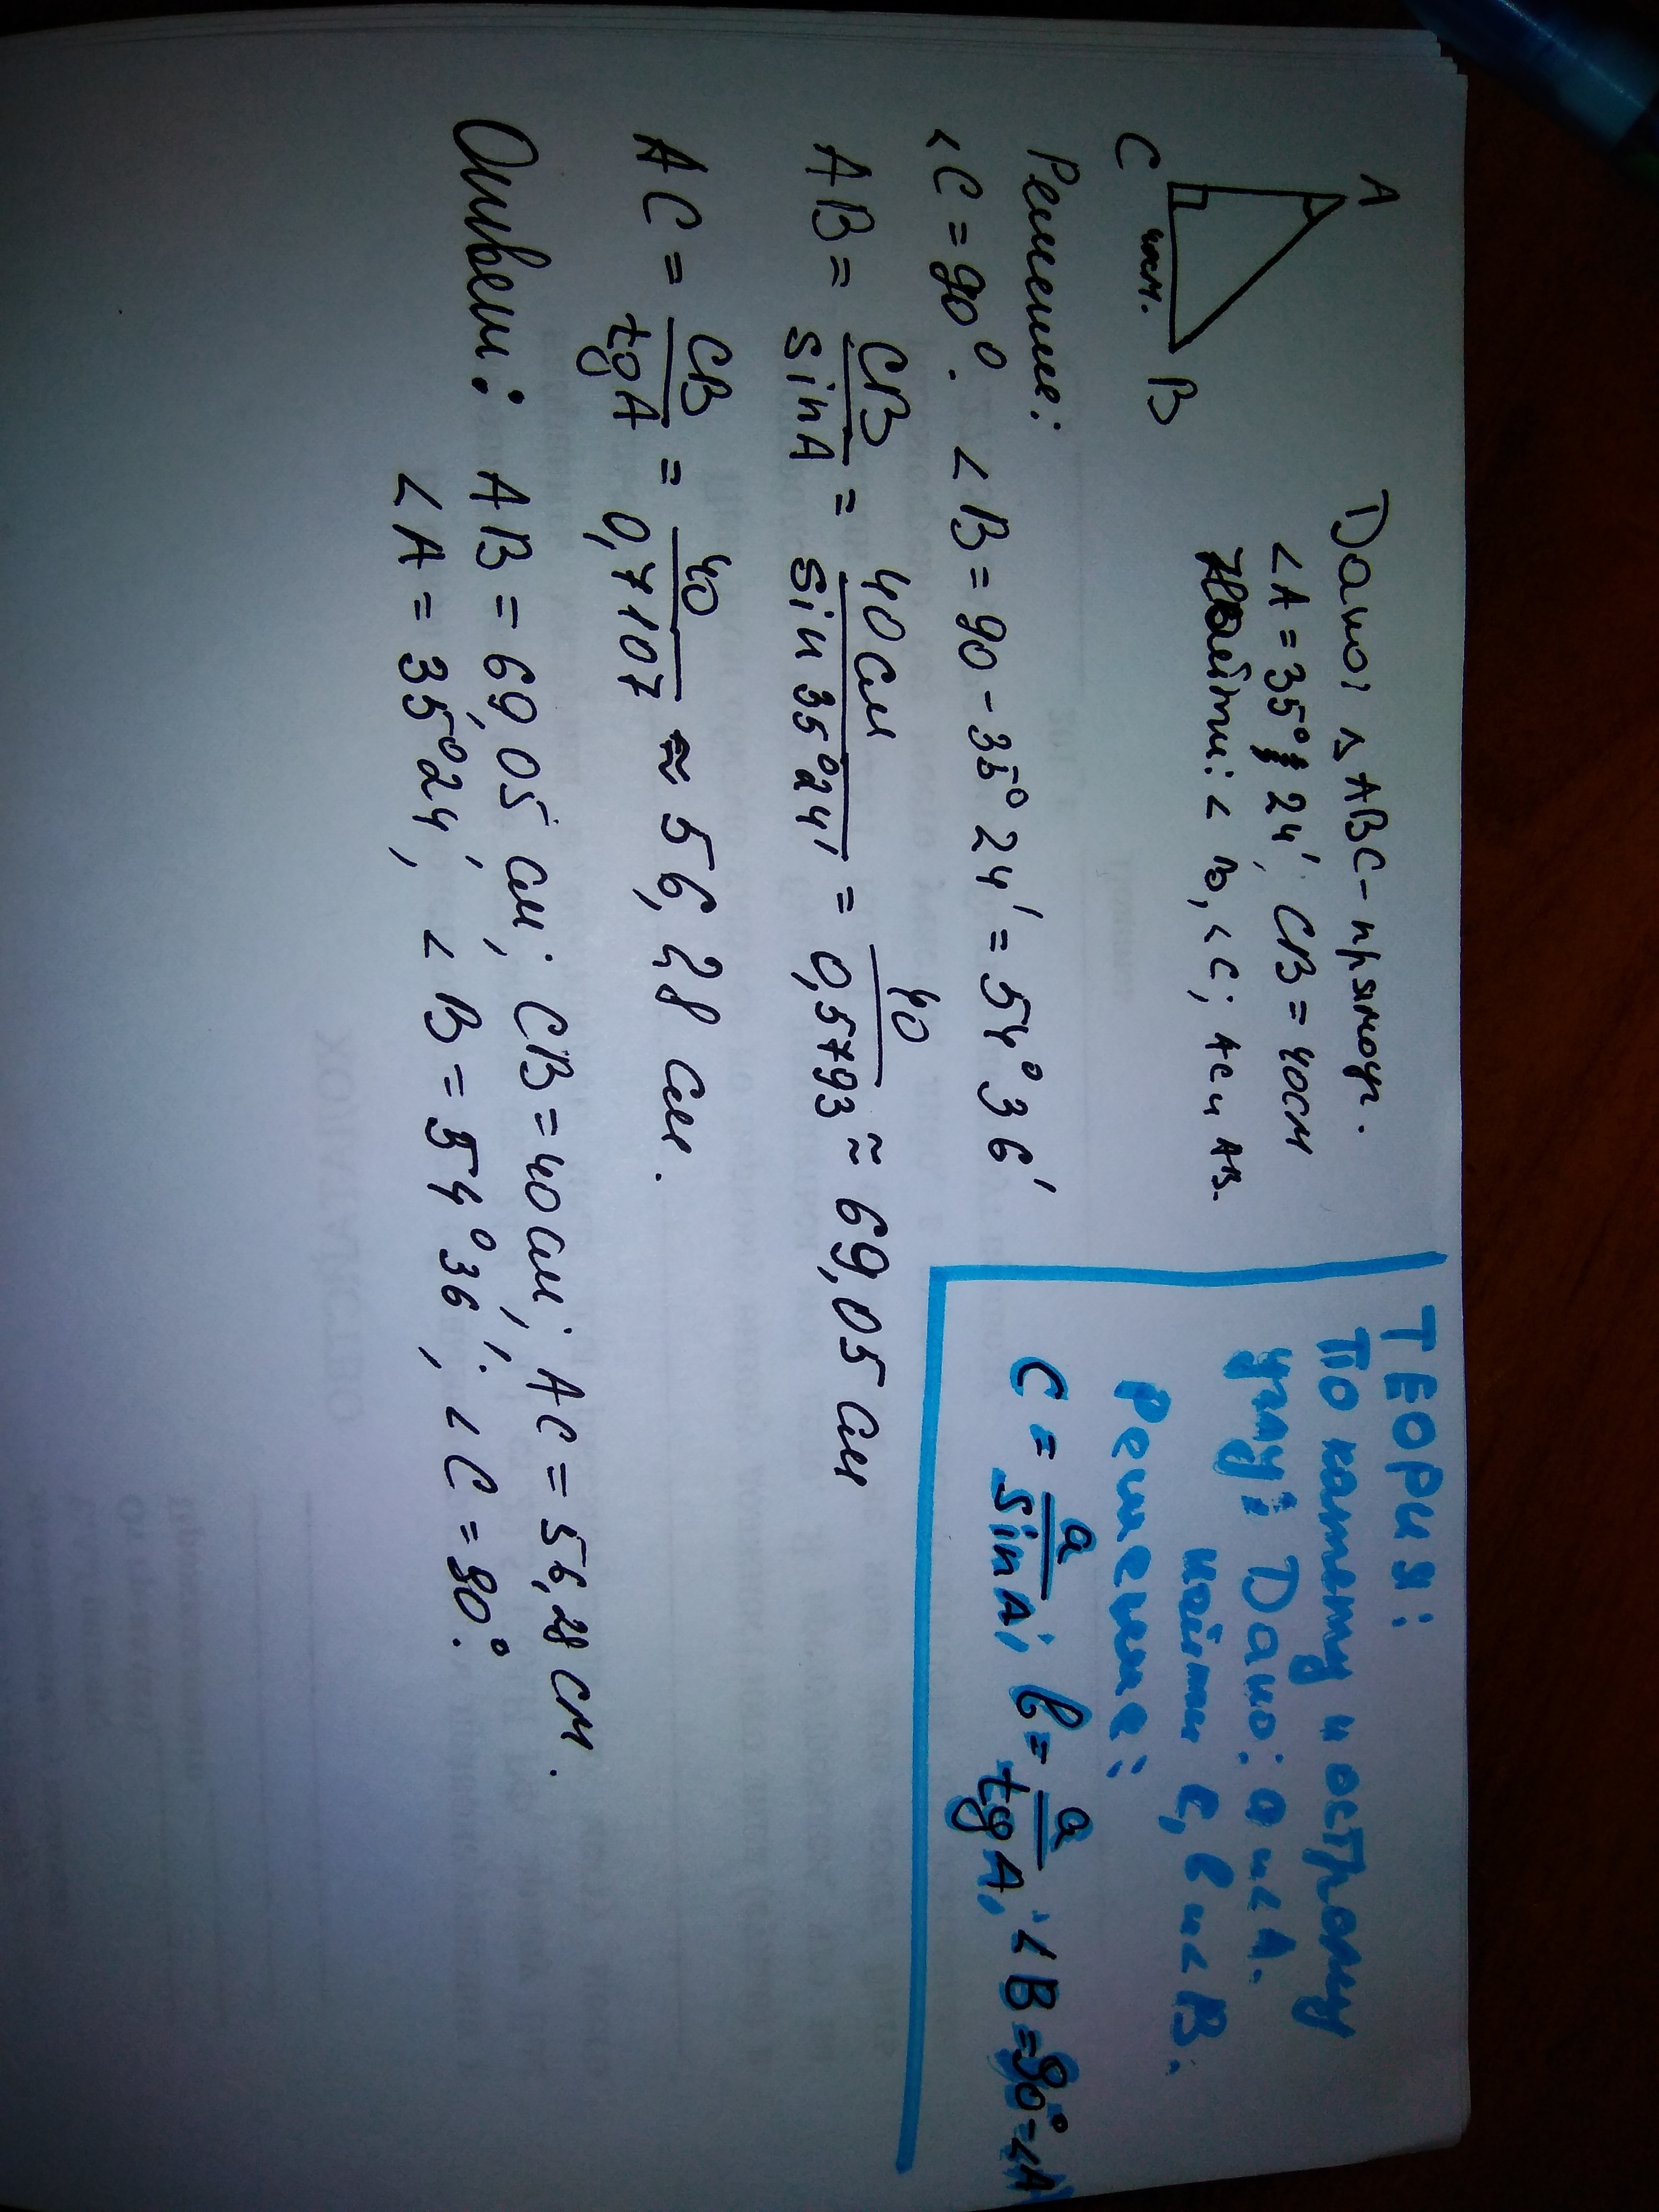 A
C
40см.
B
Дано: ⊿ABC - прямоуг.
<A = 35° 24'; CB = 40см
Найти: < B, < C; AC и AB.
Решение:
<C = 90°. <B = 90 - 35° 24' = 54° 36'
AB = CB/sinA = 40см/sin 35°24' = 40/0,5793 ≈ 69,05 см
AC = CB/tgA = 40/0,7107 ≈ 56,28 см.
Ответ: AB = 69,05 см; CB = 40см; AC = 56,28 см.
<A = 35°24', <B = 54°36'; <C = 90°.
ТЕОРИЯ:
По катету и острому
углу: Дано: a и <A.
найти c, b и < B.
Решение:
C = a/sinA; b = a/tgA, <B = 90° - <A